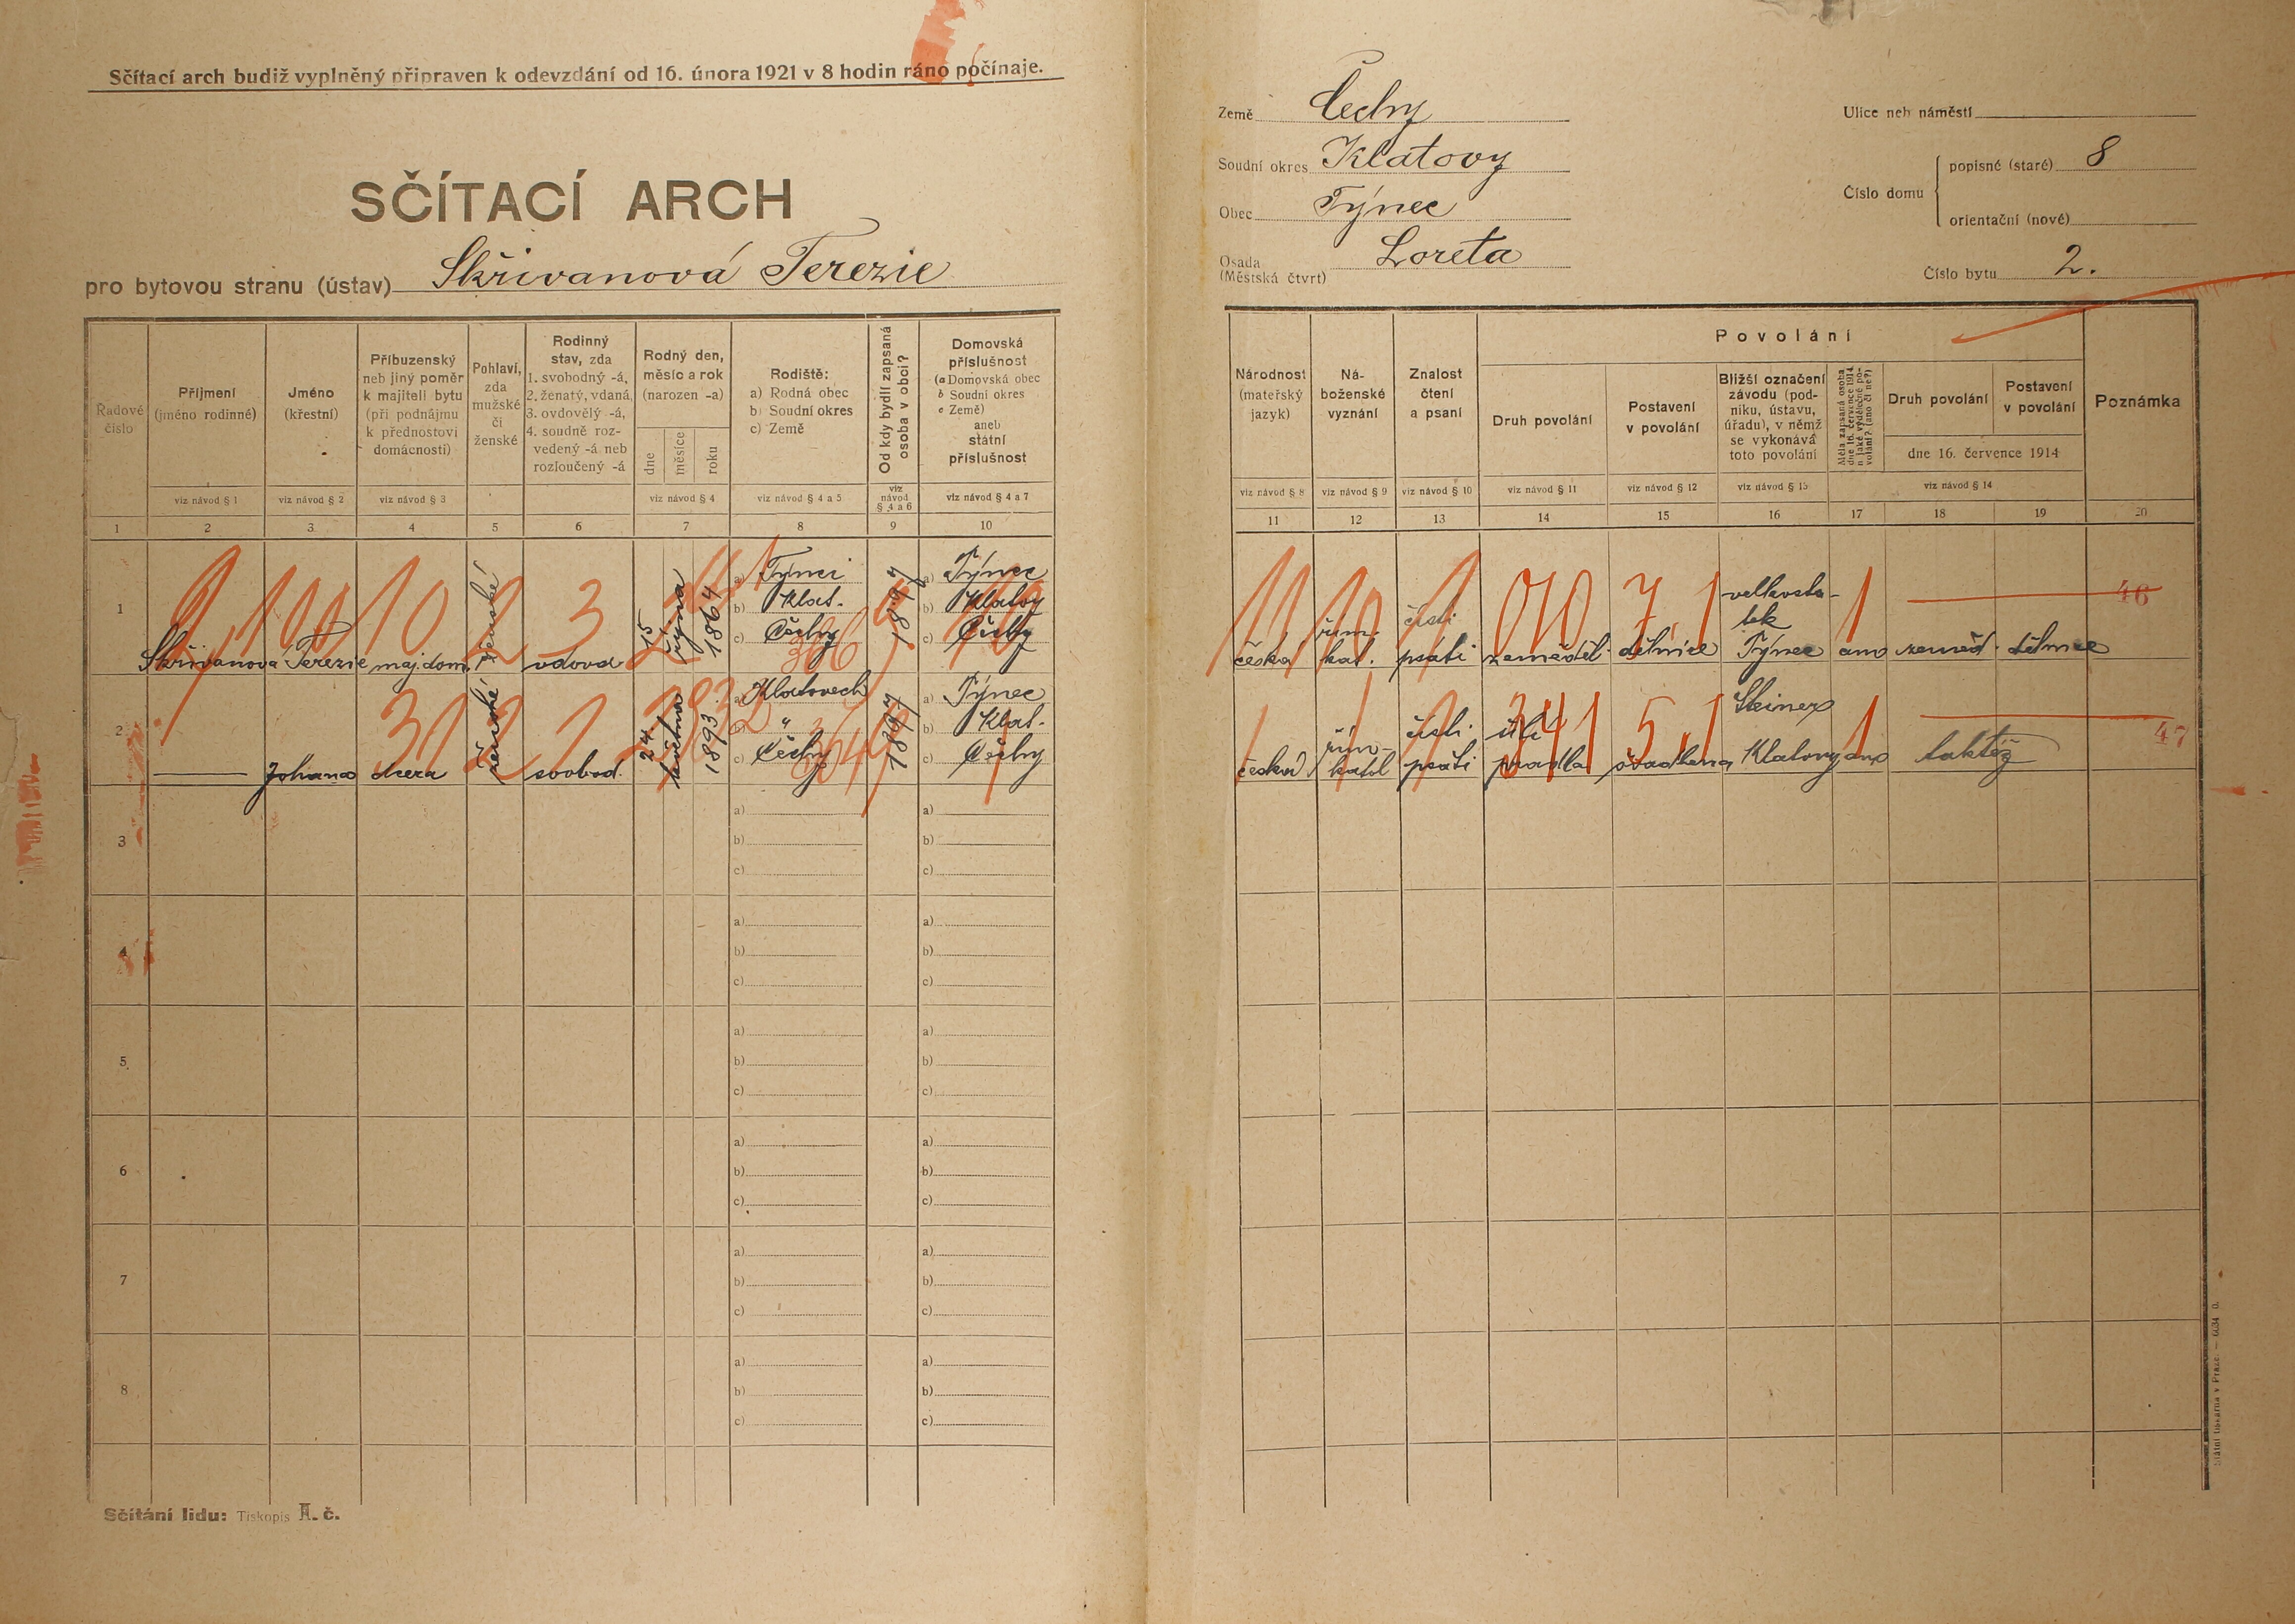 Sčítací arch budiž vyplněný připraven k odevzdání od 16. února 1921 v 8 hodin ráno počínaje.
SČÍTACÍ ARCH
pro bytovou stranu (ústav) Skřivanová Terezie
Země Čechy
Soudní okres Klatovy
Obec Týnec
Osada (Městská čtvrt) Loreta
Ulice neb náměstí
Číslo domu
popisné (staré) 8
orientační (nové)
Číslo bytu 2.
Řadové číslo
Příjmení (jméno rodinné)
Jméno (křestní)
Příbuzenský neb jiný poměr k majiteli bytu (při podnájmu k přednostovi domácnosti)
Pohlaví, zda mužské či ženské
Rodinný stav, zda 1. svobodný -á, 2. ženatý, vdaná, 3. ovdovělý -á, 4. soudně rozvedený -á neb rozloučený -á
Rodný den, měsíc a rok (narozen -a)
dne měsíce roku
Rodiště: a) Rodná obec b) Soudní okres c) Země
Od kdy bydlí zapsaná osoba v obci?
Domovská příslušnost (a Domovská obec b Soudní okres c Země) aneb státní příslušnost
viz návod § 1 viz návod § 2 viz návod § 3 viz návod § 4 viz návod § 4 a 5 viz návod § 4 a 6 viz návod § 4 a 7
1 2 3 4 5 6 7 8 9 10
Národnost (mateřský jazyk)
Náboženské vyznání
Znalost čtení a psaní
Povolání
Druh povolání
Postavení v povolání
Bližší označení závodu (podniku, ústavu, úřadu), v němž se vykonává toto povolání
Měla zapsaná osoba dne 16. července 1914 nějaké výdělečné povolání? (ano či ne?)
Druh povolání
Postavení v povolání
dne 16. července 1914
Poznámka
viz návod § 8 viz návod § 9 viz návod § 10 viz návod § 11 viz návod § 12 viz návod § 13 viz návod § 14
11 12 13 14 15 16 17 18 19 20
1 Skřivanová Terezie maj. dom. ženské vdova 15 října 1864
a) Týnci
b) Klat.
c) Čechy
1897
a) Týnec
b) Klatovy
c) Čechy
česká řím. kat. čísti psáti zeměděl. dělnice velkostatek Týnec ano zeměd. dělnice
46
2 Johana dcera ženské svobod. 24. května 1893
a) Klatovech
b) "
c) Čechy
1897
a) Týnec
b) Klat.
c) Čechy
česká řím. katol čísti psáti šití prádla švadlena Steiner Klatovy ano taktéž
47
3 a) b) c) a) b) c)
4 a) b) c) a) b) c)
5 a) b) c) a) b) c)
6 a) b) c) a) b) c)
7 a) b) c) a) b) c)
8 a) b) c) a) b) c)
Sčítání lidu: Tiskopis II. č.
Státní tiskárna v Praze. — 6034 0.